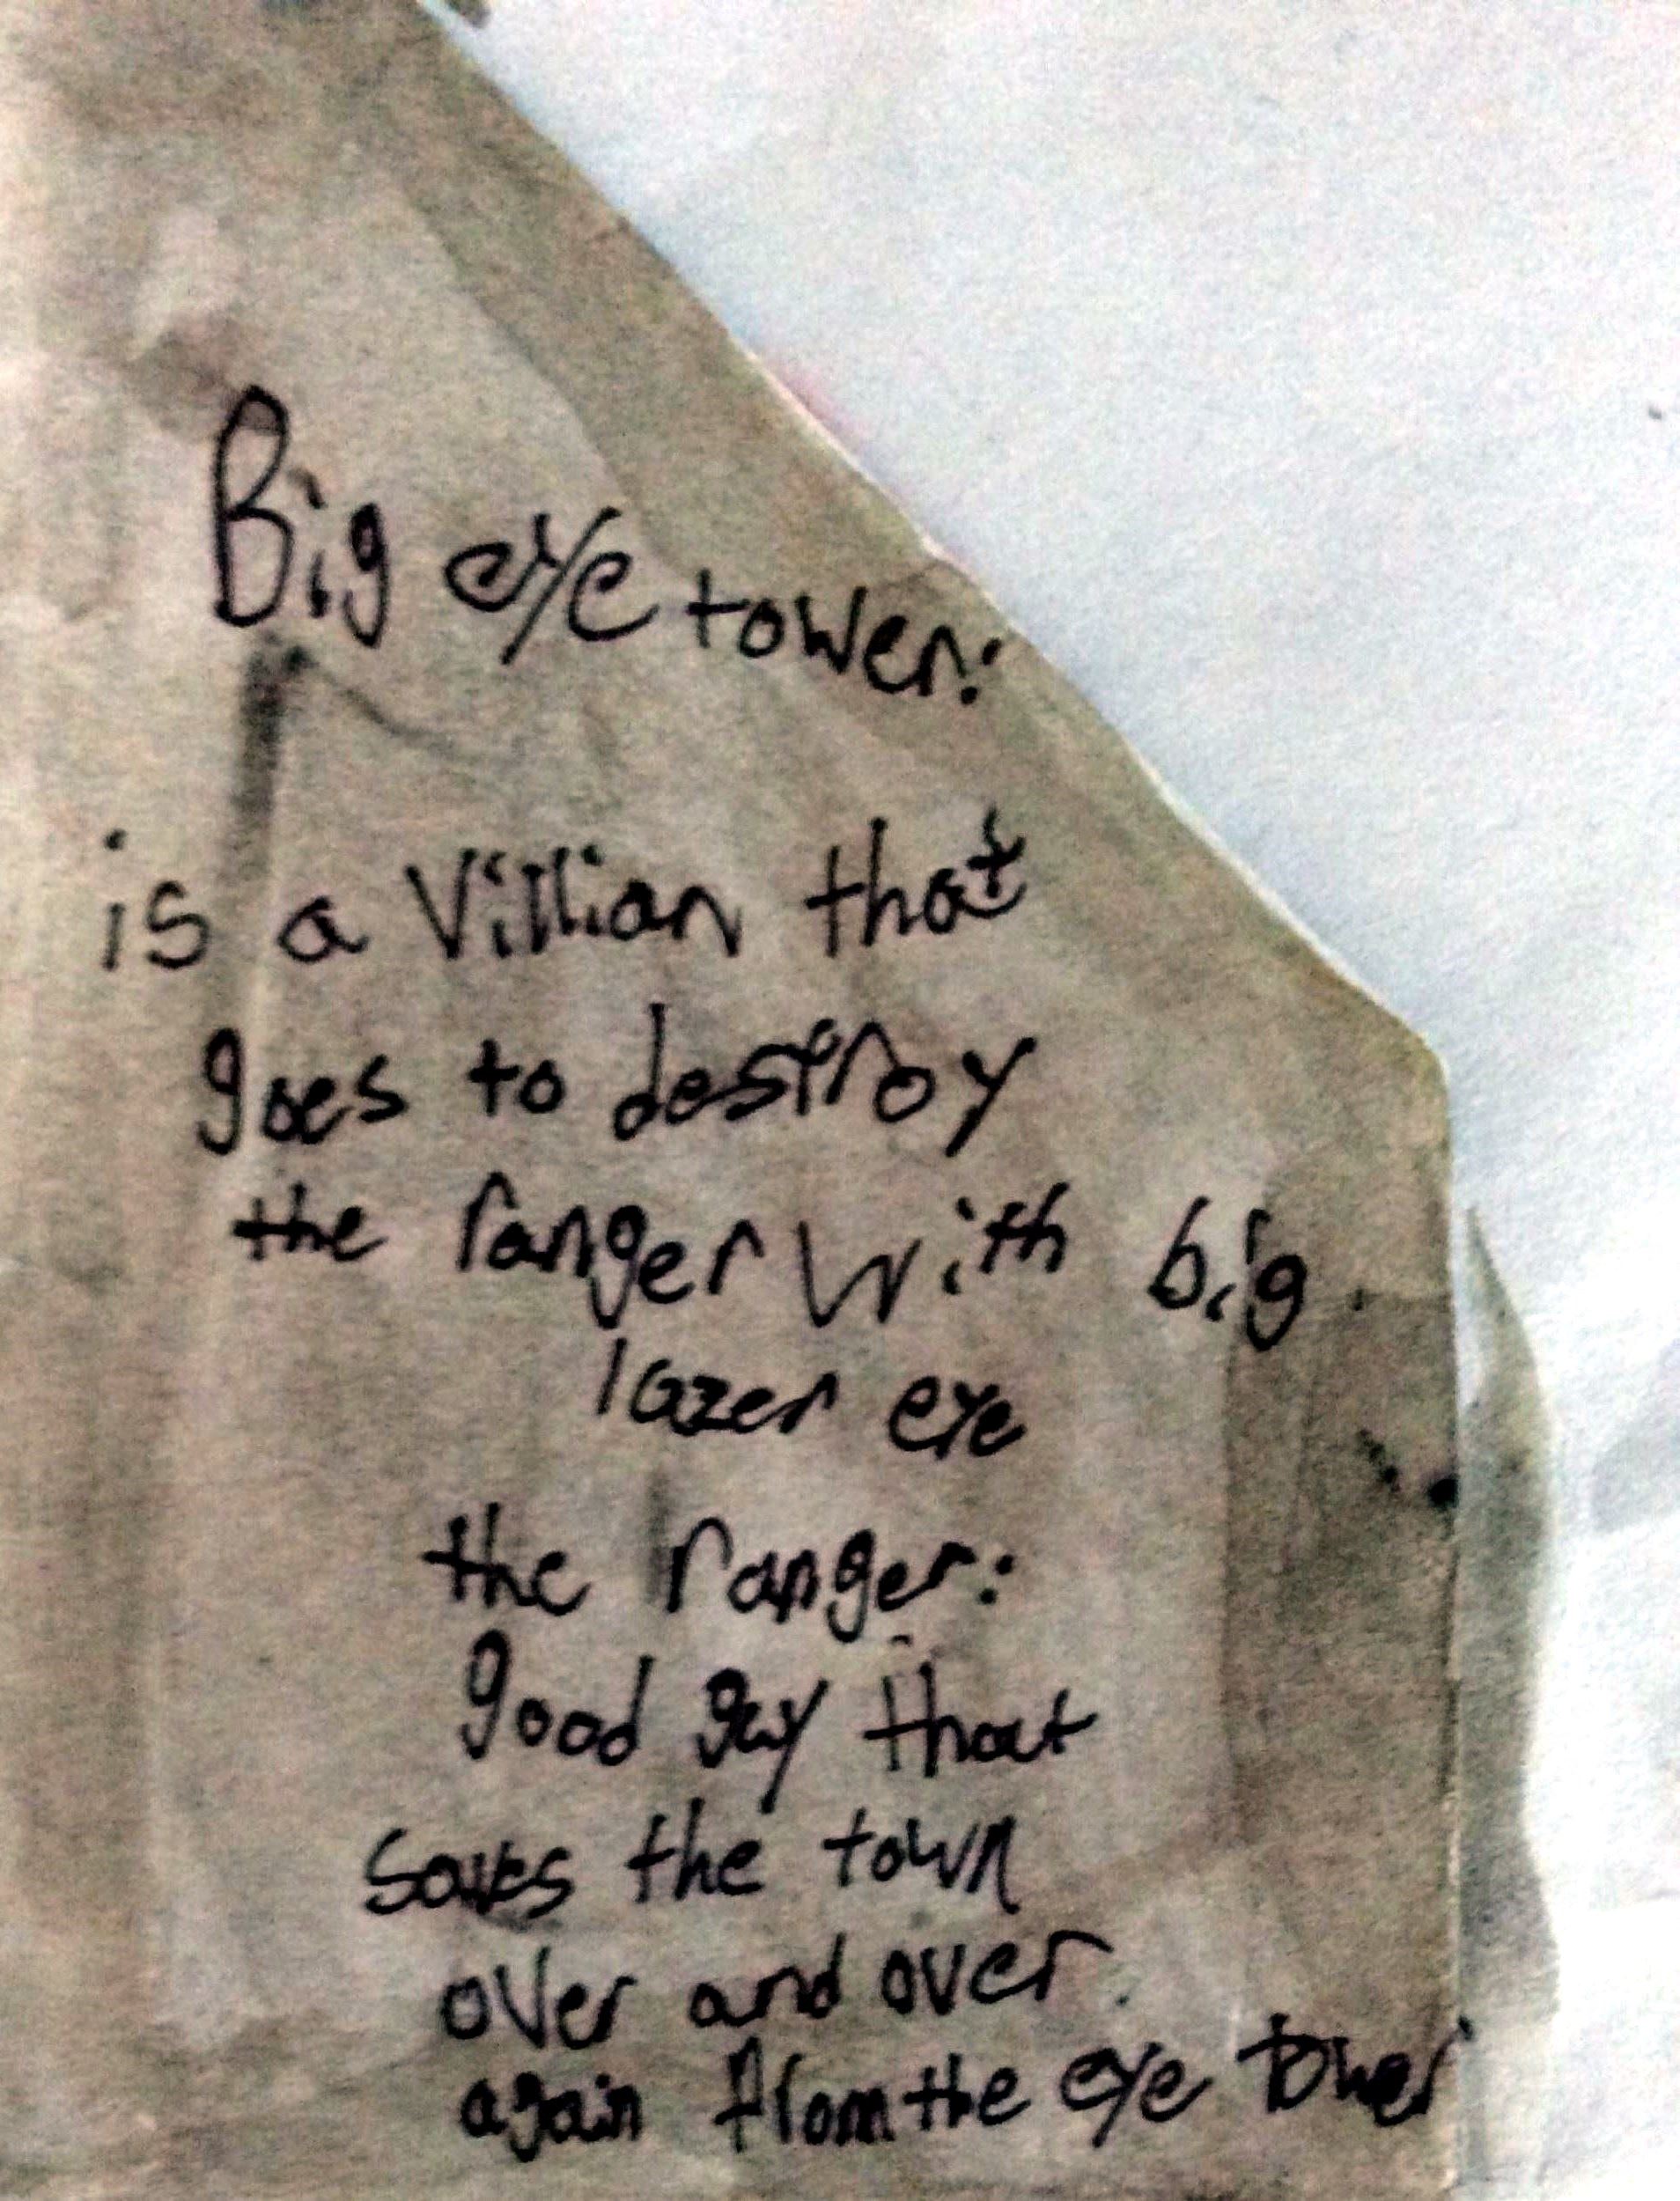 Big eye tower:
is a Villian that
goes to destroy
the ranger with big
lazer eye
the ranger:
good guy that
saves the town
over and over
again from the eye tower